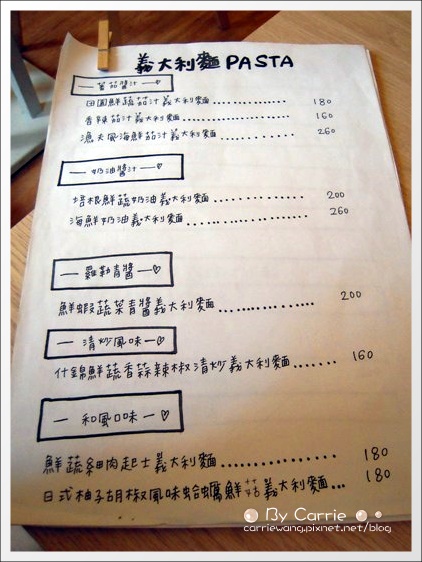 義大利麵 PASTA
蕃茄醬汁
田園鮮蔬茄汁義大利麵 .............. 180
香辣茄汁義大利麵 .............. 160
漁夫風海鮮茄汁義大利麵 .......... 260
奶油醬汁
培根鮮蔬奶油義大利麵 .............. 200
海鮮奶油義大利麵 .............. 260
— 羅勒青醬 —♡
鮮蝦蔬菜青醬義大利麵 .............. 200
— 清炒風味 —♡
什錦鮮蔬香蒜辣椒清炒義大利麵 ....... 160
— 和風口味 —♡
鮮蔬細肉起士義大利麵 .............. 180
日式柚子胡椒風味蛤蠣鮮菇義大利麵 ... 180
By Carrie
carriewang.pixnet.net/blog